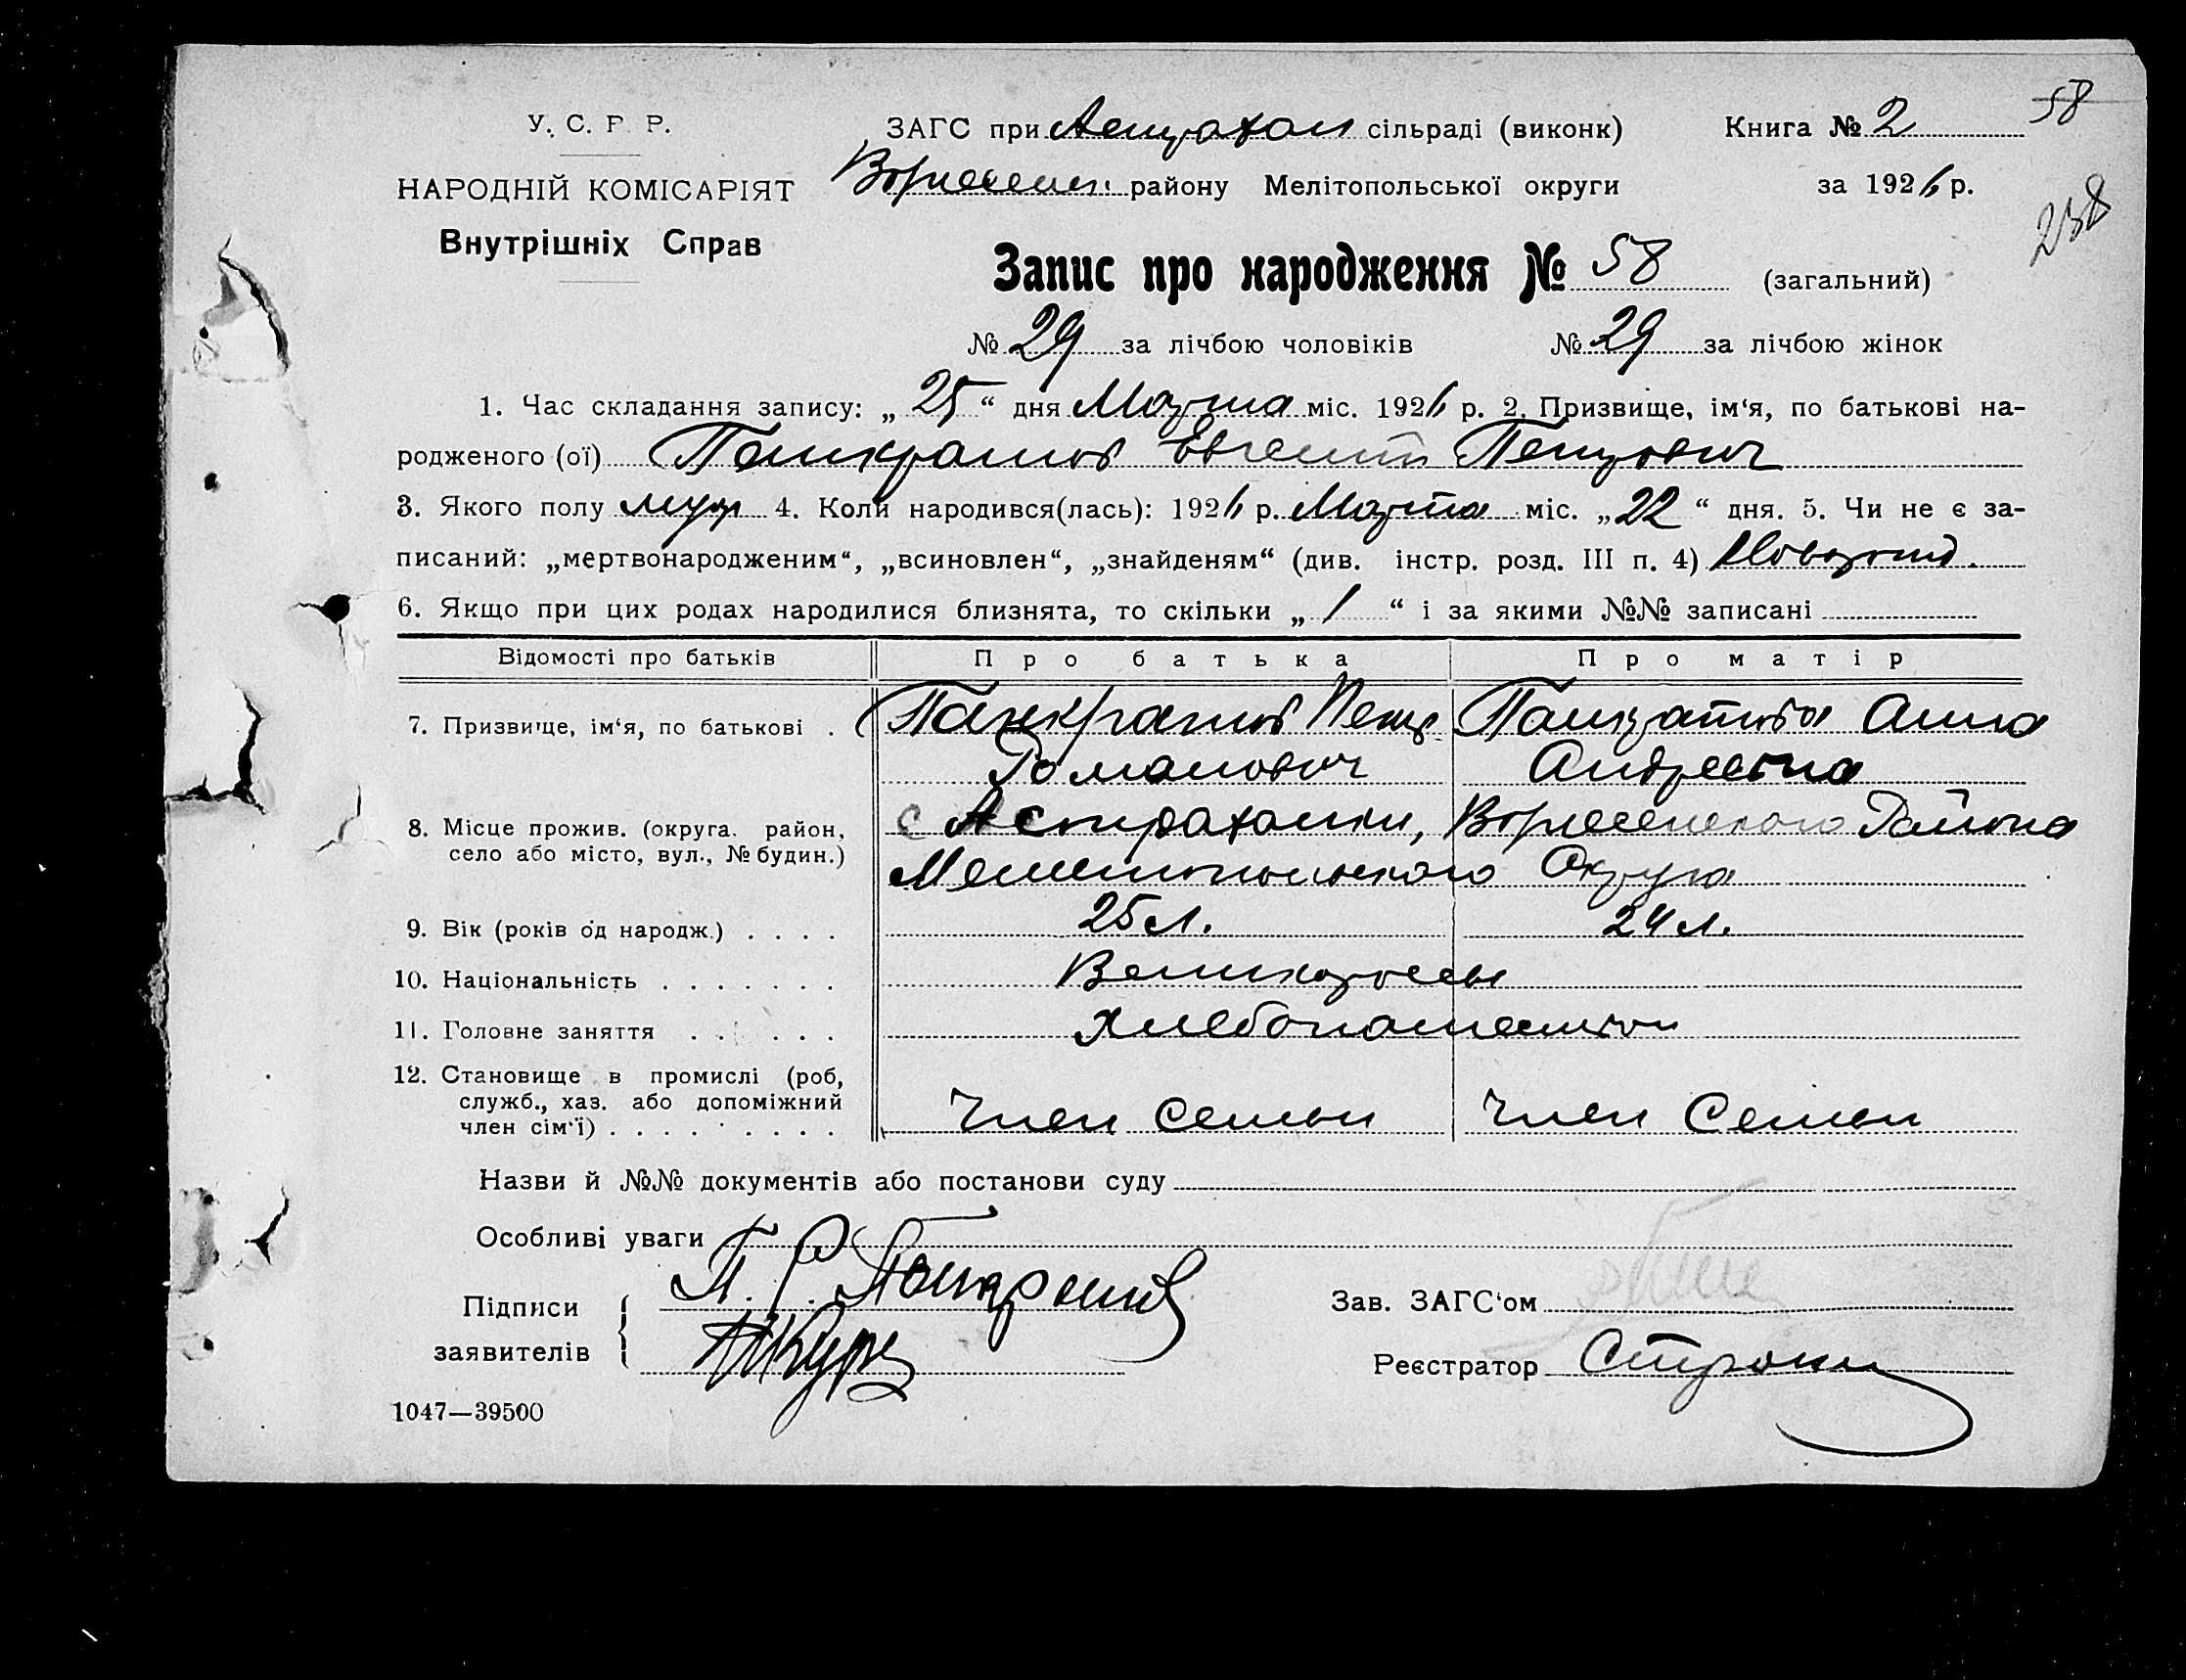 58
У. С. Р. Р.
ЗАГС при Астрахан сільраді (виконк) Книга № 2
НАРОДНІЙ КОМІСАРІЯТ
Вознесенс. району Мелітопольської округи за 1926 р.
Внутрішніх Справ
238
Запис про народження № 58 (загальний)
№ 29 за лічбою чоловіків № 29 за лічбою жінок
1. Час складання запису: „ 25 “ дня Марта міс. 1926 р. 2. Призвище, ім‘я, по батькові на-
родженого (ої) Панкратов Евгений Петрович
3. Якого полу муж 4. Коли народився(лась): 1926 р. Марта міс. „ 22 “ дня. 5. Чи не є за-
писаний: „мертвонародженим“, „всиновлен“, „знайденям“ (див. інстр. розд. III п. 4) Новорожд.
6. Якщо при цих родах народилися близнята, то скільки „ 1 “ і за якими №№ записані
Відомості про батьків Про батька Про матір
7. Призвище, ім‘я, по батькові . Панкратов Петр Панкратова Анна
Романович Андреевна
8. Місце прожив. (округа. район, с Астраханки, Вознесенского Района
село або місто, вул., № будин.) Мелитопольского Округа
9. Вік (років од народж.) . . . . 25 л. 24 л.
10. Національність . . . . . . . Великороссы
11. Головне заняття . . . . . . Хлебопашество
12. Становище в промислі (роб,
служб., хаз. або допоміжний
член сім‘ї) . . . . . . . . . Член семьи Член Семьи
Назви й №№ документів або постанови суду
Особливі уваги
Підписи П. Р. Панкратов Зав. ЗАГС‘ом
заявителів
Реєстратор
1047—39500